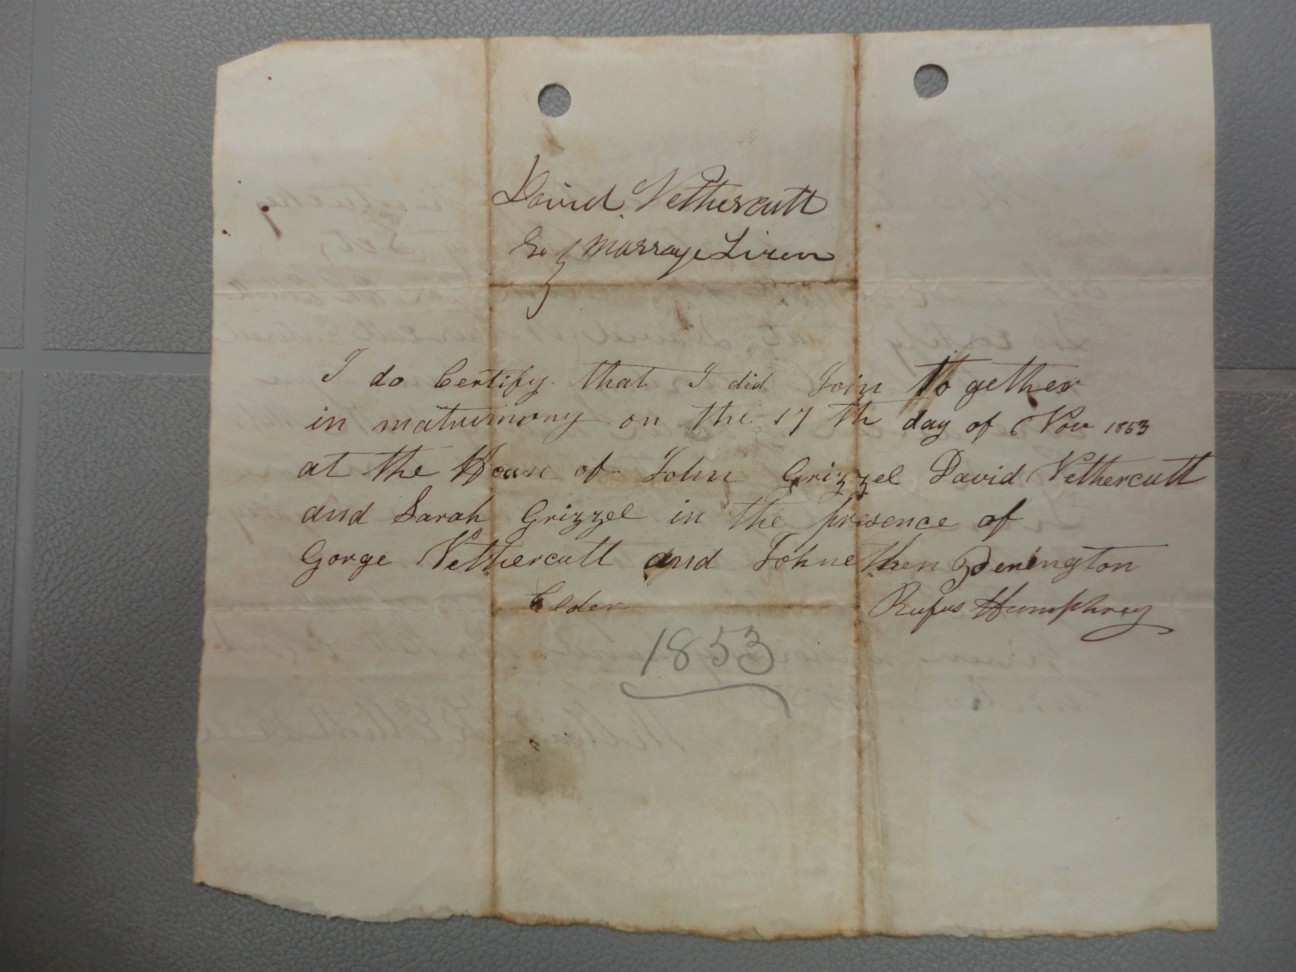 David Nethercutt
Marrage Licen
I do Certify that I did Join Together
in matrimony on the 17th day of Nov 1853
at the House of John Grizzel David Nethercutt
and Sarah Grizzel in the presence of
Gorge Nethercutt and Johnethen Penington
Elder Rufus Humphrey
1853